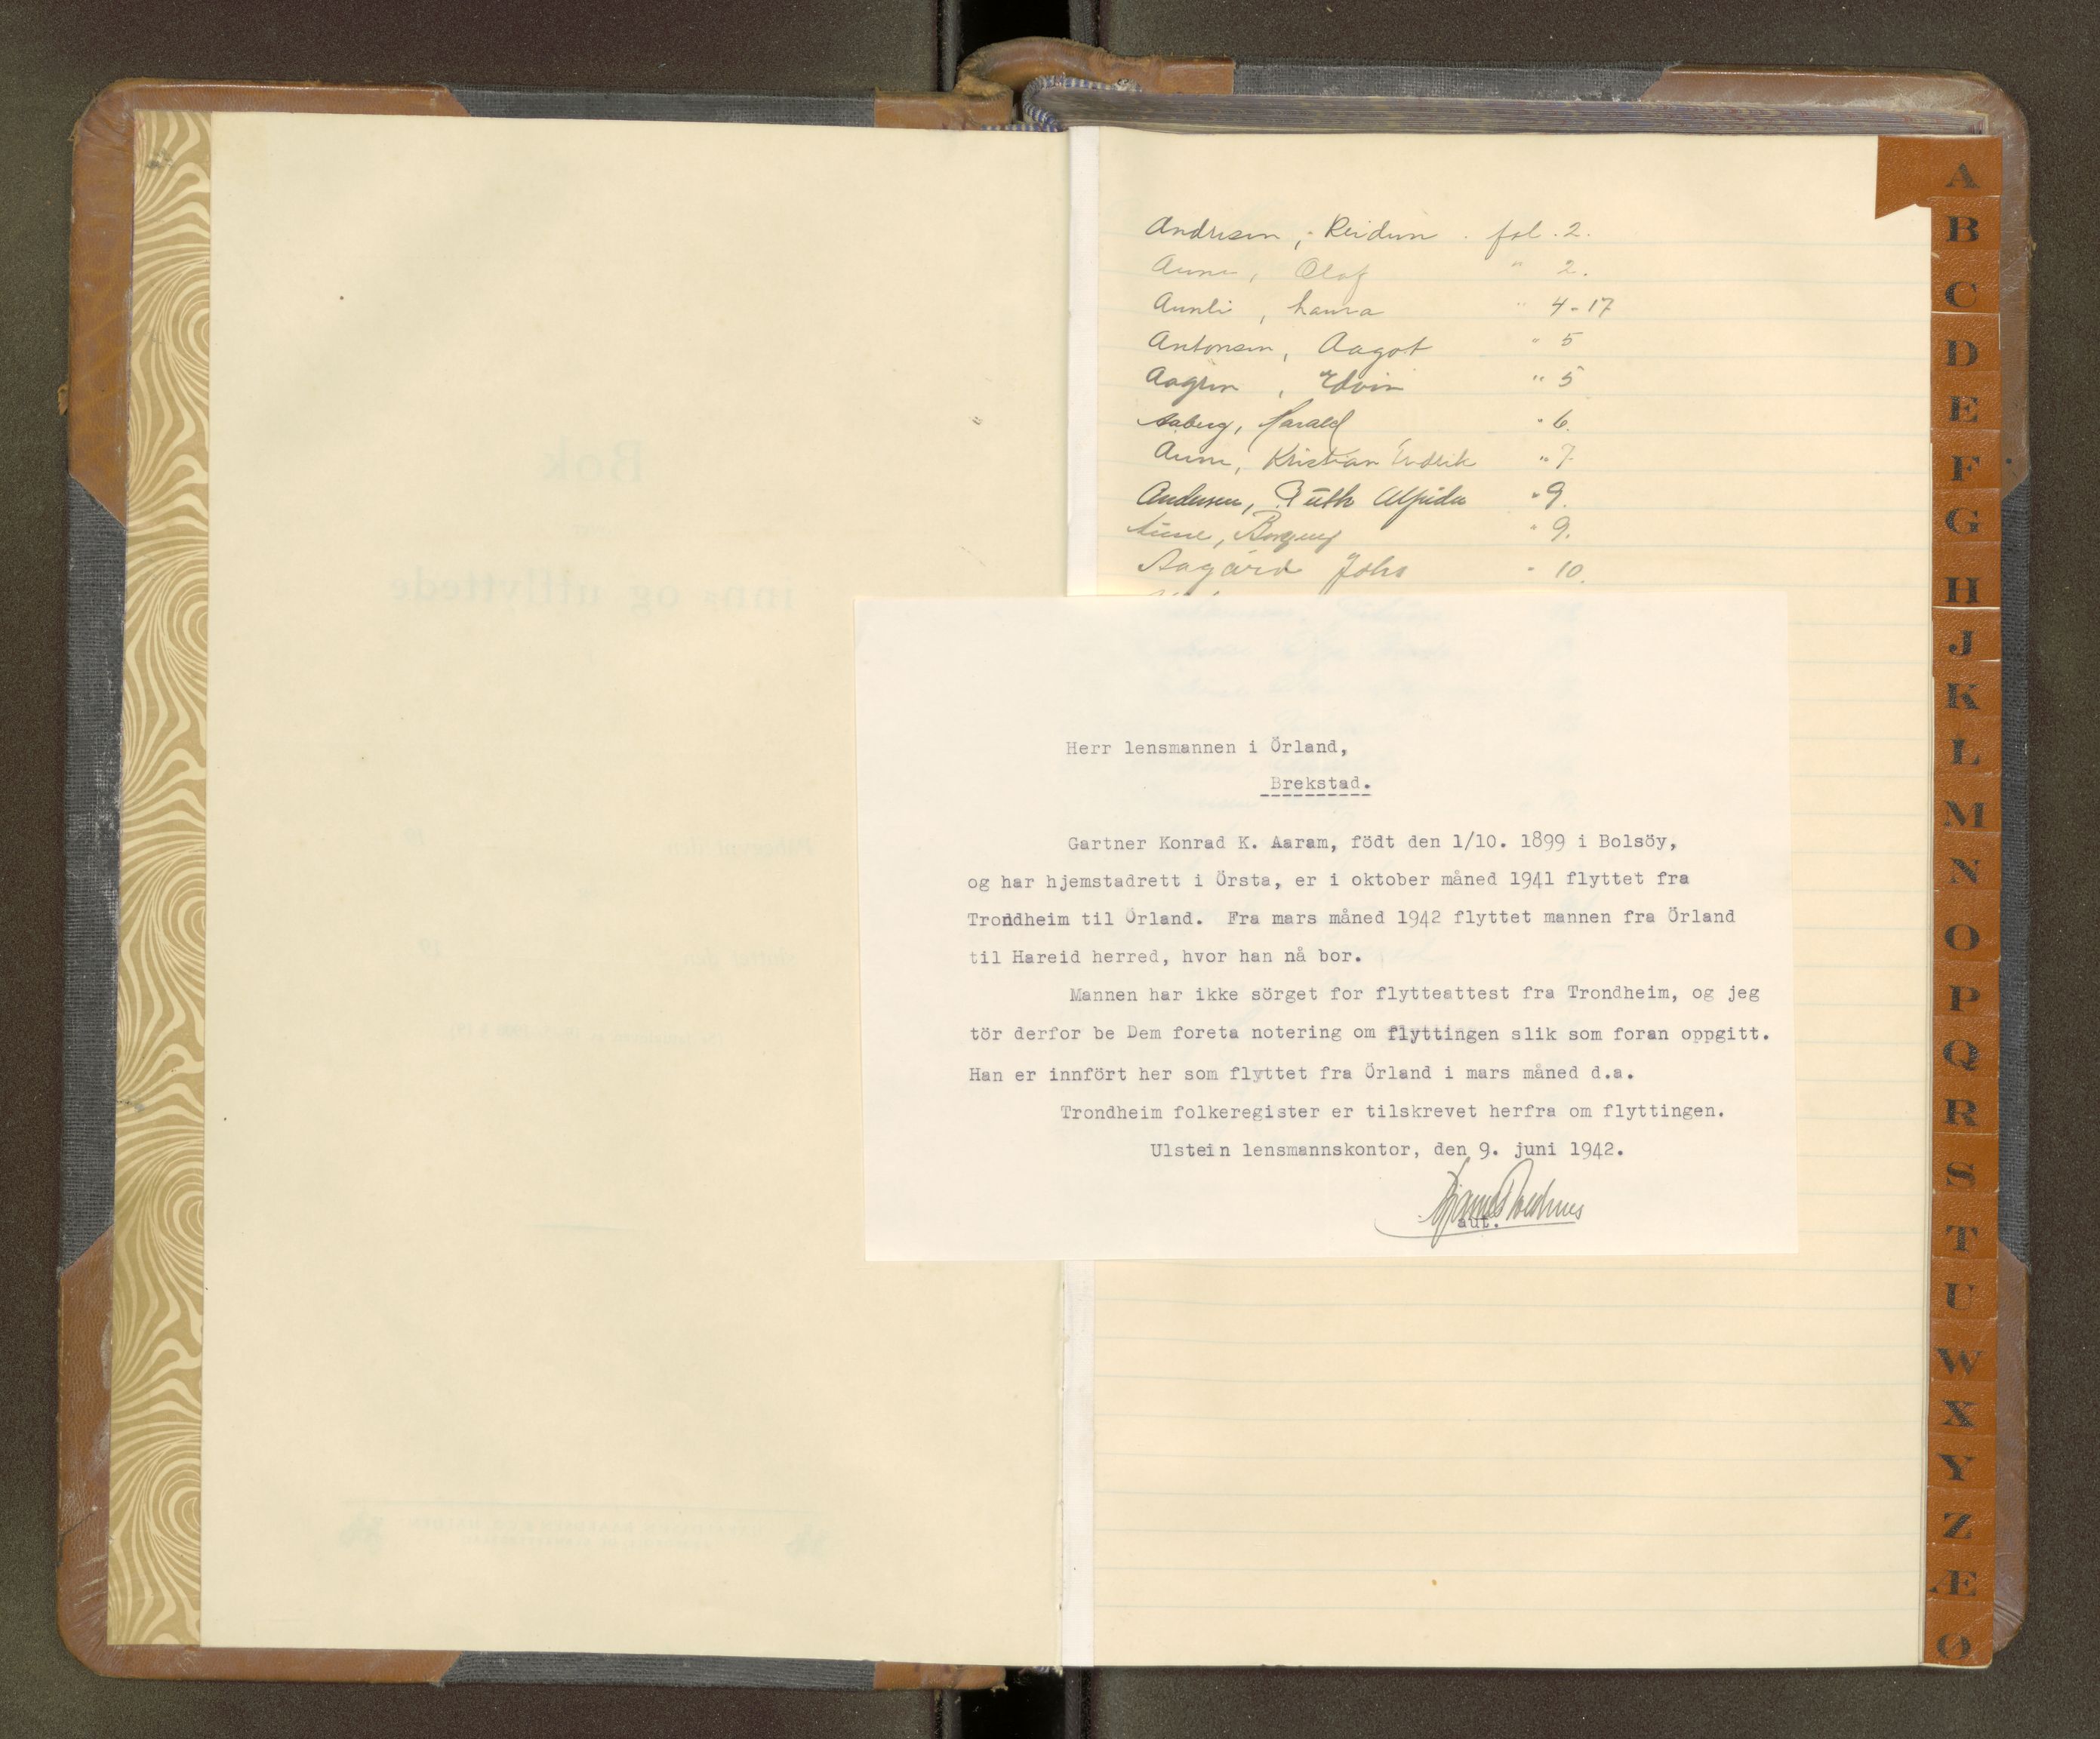 Bok
inn- og utflyttede
Andresen, Reidun. fol. 2.
Aune, Olaf " 2.
Aunli, Laura " 4-17
Antonsen, Aagot " 5
Aagren, Edvin " 5
Aaberg, Harald " 6.
Aune, Kristian Endrik " 7
Andersen, Ruth Alfrida " 9.
Aune, Borgny " 9.
Aagård Johs " 10.
Herr lensmannen i Örland,
Brekstad.
Gartner Konrad K. Aaram, födt den 1/10. 1899 i Bolsöy,
og har hjemstadrett i Örsta, er i oktober måned 1941 flyttet fra
Trondheim til Örland. Fra mars måned 1942 flyttet mannen fra Örland
til Hareid herred, hvor han nå bor.
Mannen har ikke sörget for flytteattest fra Trondheim, og jeg
tör derfor be Dem foreta notering om flyttingen slik som foran oppgitt.
Han er innfört her som flyttet fra Örland i mars måned d.a.
Trondheim folkeregister er tilskrevet herfra om flyttingen.
Ulstein lensmannskontor, den 9. juni 1942.
aut.
A
B
C
D
E
F
G
H
J
K
L
M
N
O
P
Q
R
S
T
U
W
X
Y
Z
Æ
Ø